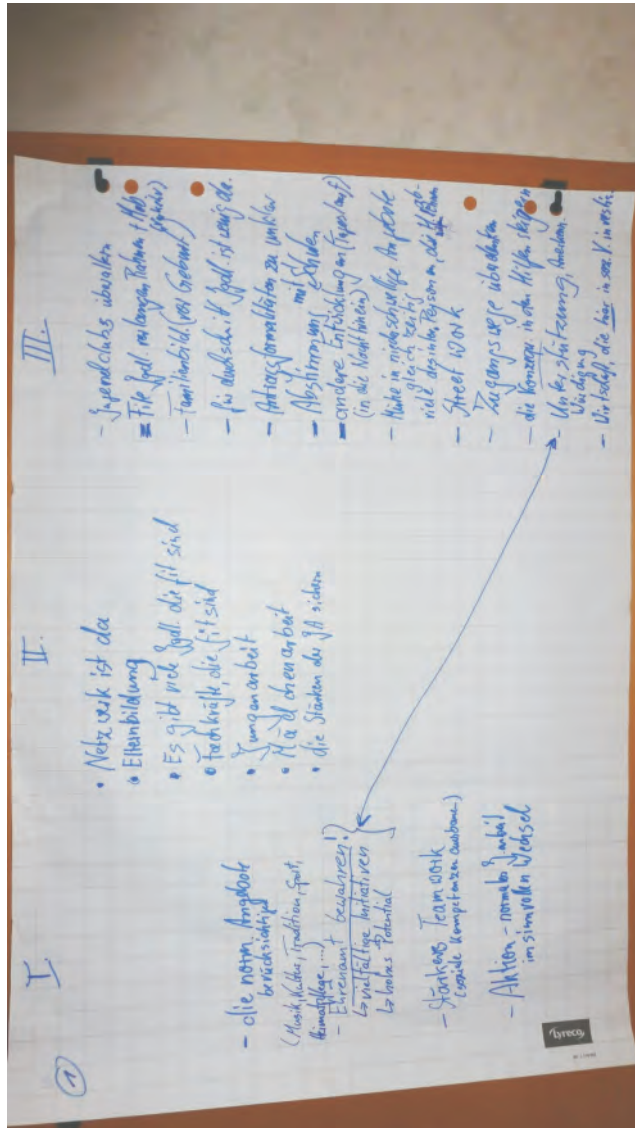 1
I.
- die norm. Angebote
berücksichtigen
(Musik, Kultur, Tradition, Sport,
Heimatpflege, ...)
- Ehrenamt bewahren!
↳ vielfältige Initiativen
↳ hohes Potential
- Stärkeres Teamwork
(soziale Kompetenzen ausbauen)
- Aktion - normale J.arbeit
im sinnvollen Wechsel
II.
• Netzwerk ist da
• Elternbildung
• Es gibt viele Jgdl. die fit sind
• Fachkräfte, die fit sind
• Jungenarbeit
• Mädchenarbeit
• die Stärken der JA sichern
III.
- Jugendclubs
- Jgdl. verlangen Rahmen + Halt
- Familienbild (vor Geburt)
- für durchschnitt Jgdl. ist wenig da.
- Antragsformalitäten zu unklar
- Abstimmung mit Schulen
- andere Entwicklung im Tagesablauf
(in die Nacht hinein)
- Mühe in niedrigschwellige Angebote
gleichzeitig
- Street work
- Zugangswege überdenken
- die Konzepte in den Hilfen
- Unterstützung,
Würdigung
- Wirtschaft, die hier in soz. V. investi.
lyreco